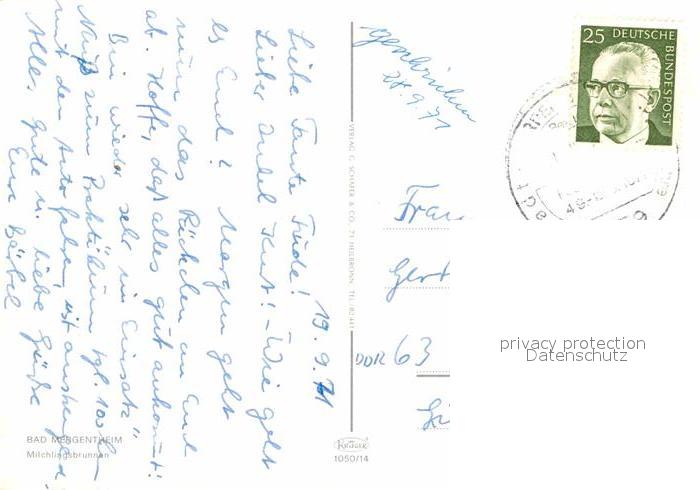 19.9.71
Liebe Tante Trude!
Lieber Onkel Kurt! - Wie geht
es Euch? Morgen geht
nun das Päckchen an Euch
ab. Hoffe, daß alles gut ankommt!
Bin wieder sehr im "Einsatz"
Muß zum Praktikum tgl. 100 km
mit dem Auto fahren, ist anstrengend.
Alles Gute u. liebe Grüße
Eure Bärbel
BAD MERGENTHEIM
Milchlingsbrunnen
VERLAG G. SCHÄFER & CO. 71 HEILBRONN, TEL. 82411
KRÜGER
1050/14
28.9.71
25 DEUTSCHE BUNDESPOST
Frau
Gert
DDR 63
privacy protection
Datenschutz